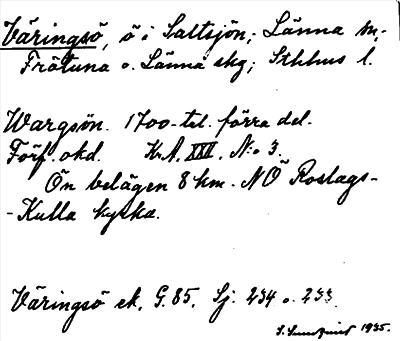 Väringsö, ö i Saltsjön; Länna sn,
Frötuna o. Länna skg; Sthlms l.
Wargsön. 1700-tal. förra del.
Förf. okd. K.A. XXI. N:o 3.
Ön belägen 8 km. NÖ Roslags-
-Kulla kyrka.
Väringsö ek. G.85. Sj: 234 o. 233.
S. Lundqvist 1935.